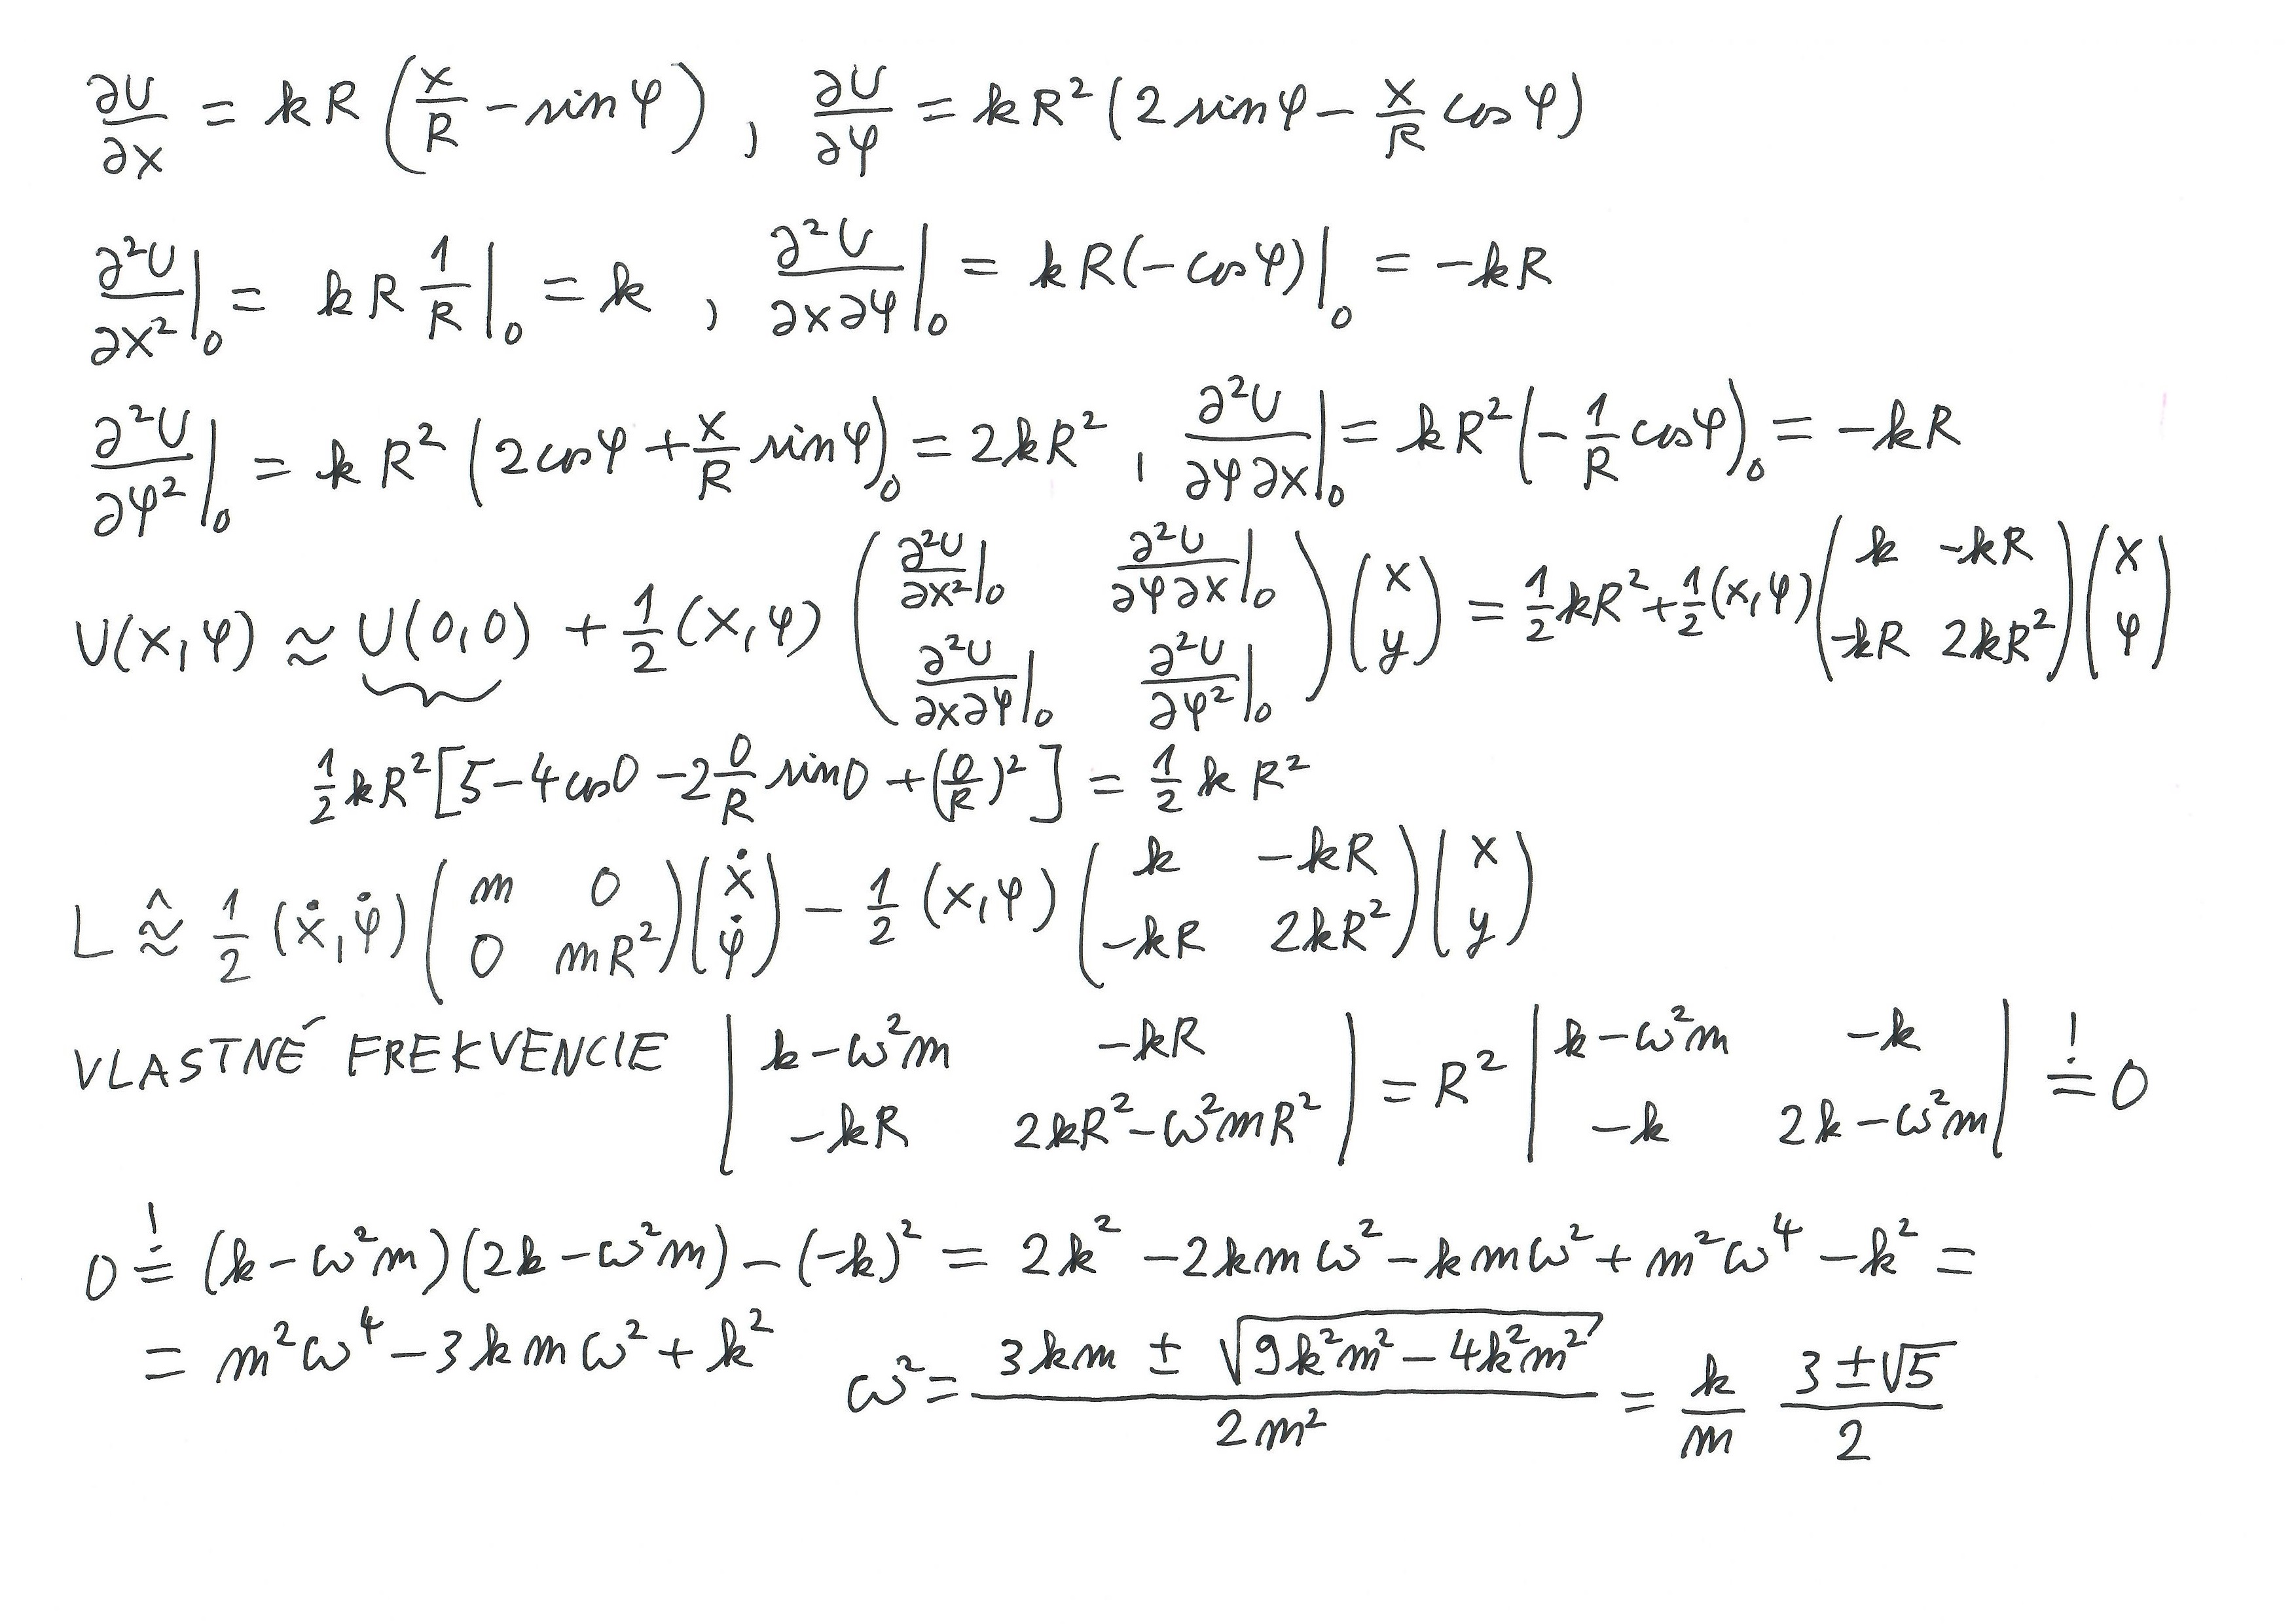 ∂U/∂x = kR (x/R − sin φ) , ∂U/∂φ = kR² (2 sin φ − x/R cos φ)
∂²U/∂x² |₀ = kR 1/R |₀ = k , ∂²U/∂x∂φ |₀ = kR(−cos φ) |₀ = −kR
∂²U/∂φ² |₀ = kR² (2 cos φ + x/R sin φ)₀ = 2kR² , ∂²U/∂φ∂x |₀ = kR² (−1/R cos φ)₀ = −kR
U(x,φ) ≈ U(0,0) + 1/2 (x,φ) ( ∂²U/∂x² |₀ ∂²U/∂φ∂x |₀ ; ∂²U/∂x∂φ |₀ ∂²U/∂φ² |₀ ) ( x ; y ) = 1/2 kR² + 1/2 (x,φ) ( k −kR ; −kR 2kR² ) ( x ; φ )
1/2 kR² [5 − 4 cos 0 − 2 0/R sin 0 + (0/R)²] = 1/2 kR²
L ≙≈ 1/2 (ẋ,φ̇) ( m 0 ; 0 mR² ) ( ẋ ; φ̇ ) − 1/2 (x,φ) ( k −kR ; −kR 2kR² ) ( x ; y )
VLASTNÉ FREKVENCIE | k−ω²m −kR ; −kR 2kR²−ω²mR² | = R² | k−ω²m −k ; −k 2k−ω²m | =! 0
0 =! (k−ω²m)(2k−ω²m) − (−k)² = 2k² − 2kmω² − kmω² + m²ω⁴ − k² =
= m²ω⁴ − 3kmω² + k² ω² = (3km ± √(9k²m² − 4k²m²)) / 2m² = k/m (3±√5)/2